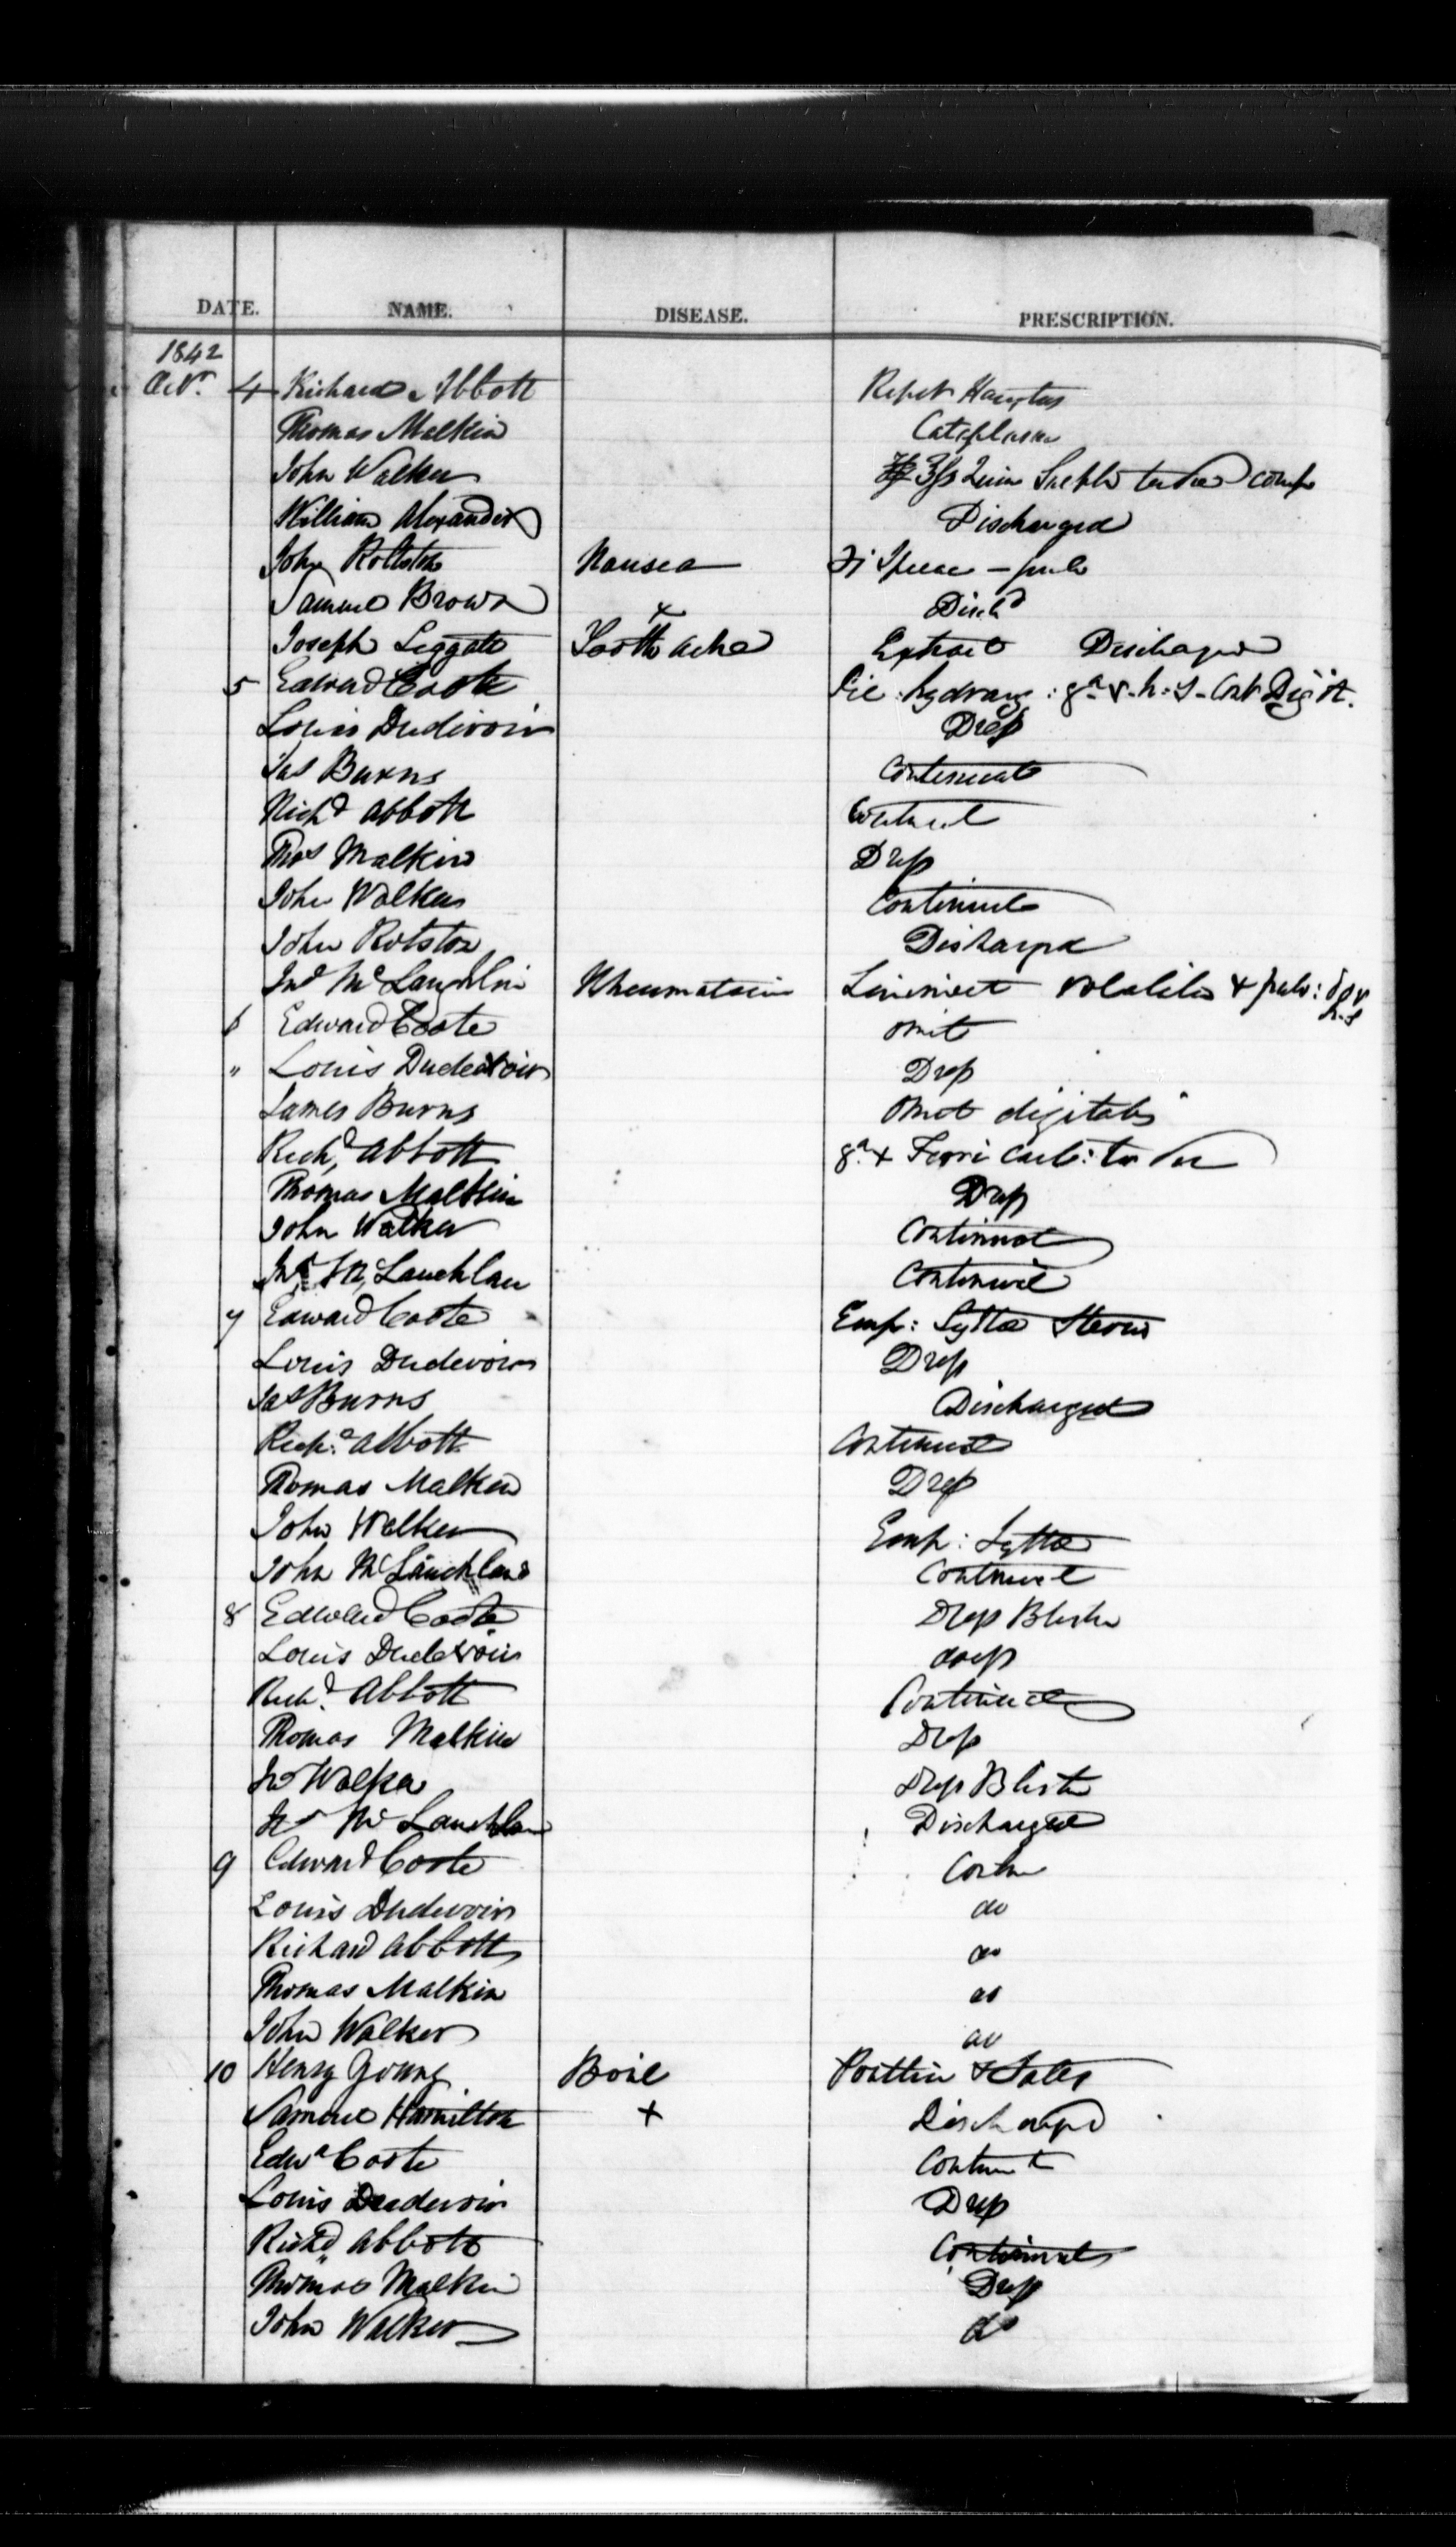 DATE. NAME. DISEASE. PRESCRIPTION.
1842
Octr. 4 Richard Abbott Repet Haustus
Thomas Malkin Cataplasm
John Walker ʒfs Quin Sulph ter die comp
William Alexander Discharged
John Rolston Nausea Ipecac - pulv
Samuel Brown x Dischd
Joseph Leggate Tooth ache Extract Discharged
5 Edward Coote Pil: hydrarg: gr v. h:s - Cont Digit.
Louis Dudevoir Drep
Jas Burns Continuat
Richd Abbott Continuat
Thos Malkin Drep
John Walker Continuat
John Rolston Discharged
Jno McLaughlin Rheumatism Liniment volatile & pulv: dov h.s
6 Edward Coote omit
" Louis Dudevoir Drep
James Burns omit digitalis
Richd Abbott gr x Ferri Carb: ter die
Thomas Malkin Drep
John Walker Continuat
Jno Mc Lauchlan Continue
7 Edward Coote Emp: Lyttæ Sterno
Louis Dudevoir Drep
Jas Burns Discharged
Richd Abbott Continuat
Thomas Malkin Drep
John Walker Emp: Lyttæ
John McLauchlan Continue
8 Edward Coote Drep Blister
Louis Dudevoir drep
Richd Abbott Continue
Thomas Malkin Drep
Jno Walker Drep Blister
Jno Mc Lauchlan Discharged
9 Edward Coote Contin
Louis Dudevoir do
Richard Abbott do
Thomas Malkin do
John Walker do
10 Henry Young Boil Poultice & Salts
Samuel Hamilton x Discharged
Edwd Coote Continuat
Louis Dudevoir Drep
Richd Abbott Continuat
Thomas Malkin Drep
John Walker do